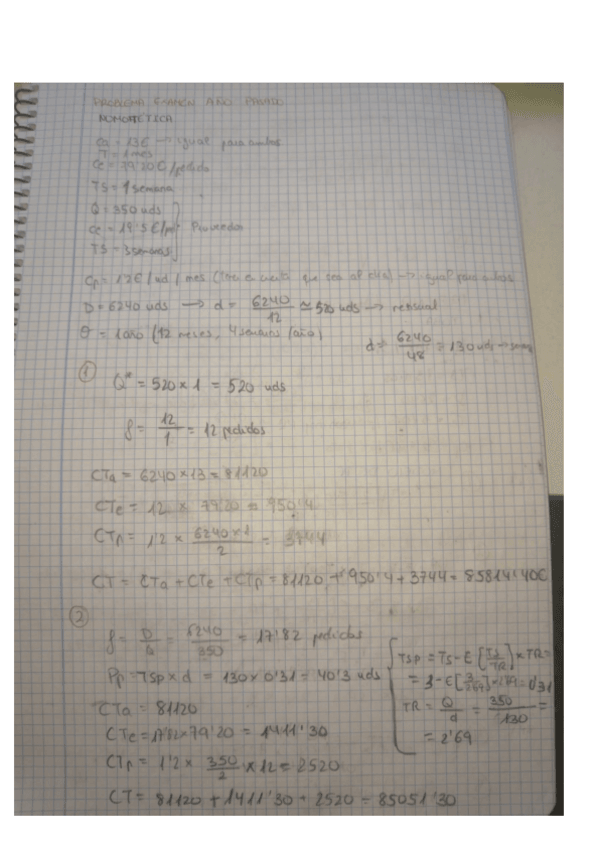 PROBLEMA EXAMEN AÑO PASADO
NOMOTÉTICA
Ca = 13€ → igual para ambos
T = 1 mes
Ce = 79'20€/pedido
TS = 1 semana
Q = 350 uds
Ce = 19'5€/ Proveedor
TS = 3 semanas
Cp = 1'2€/ud/mes que sea al día) → igual para ambos
D = 6240 uds → d = 6240/12 ≃ 520 uds → mensual
θ = 1 año (12 meses, 4 semanas
d = 6240/48 = 130 uds →
① Q* = 520 x 1 = 520 uds
f = 12/1 = 12 pedidos
CTa = 6240 x 13 = 81120
CTe = 12 x 79'20 = 950'4
CTp = 1'2 x 6240x1/2 = 3744
CT = CTa + CTe + CTp = 81120 + 950'4 + 3744 = 85814'40€
②
f = D/Q = 6240/350 = 17'82 pedidos
Pp = TSp x d = 130 x 0'31 = 40'3 uds
CTa = 81120
CTe = 17'82 x 79'20 = 1411'30
CTp = 1'2 x 350/2 x 12 = 2520
CT = 81120 + 1411'30 + 2520 = 85051'30
TSp = TS - E [TS/TR] x TR =
= 3 - E[3/2'69] = 0'31
TR = Q/d = 350/130 =
= 2'69